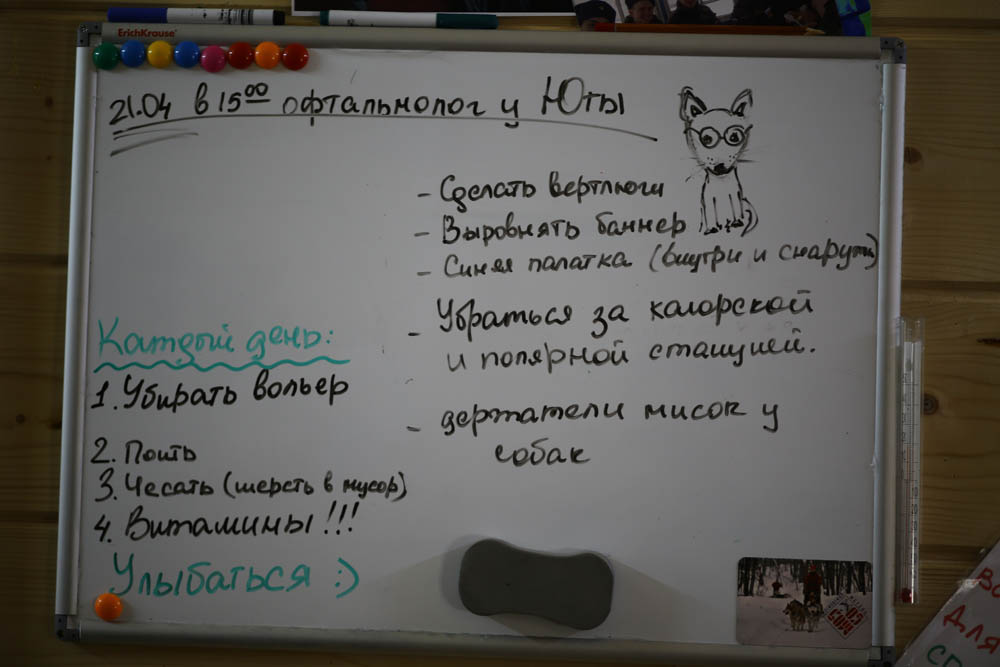 ErichKrause
21.04 в 15⁰⁰ офтальмолог у Юты
- Сделать вертлюги
- Выровнять баннер
- Синяя палатка (внутри и снаружи)
- Убраться за каюрской
и полярной станцией.
- держатели мисок у
собак
Каждый день:
1. Убирать вольер
2. Поить
3. Чесать (шерсть в мусор)
4. Витамины!!!
Улыбаться :)
Для